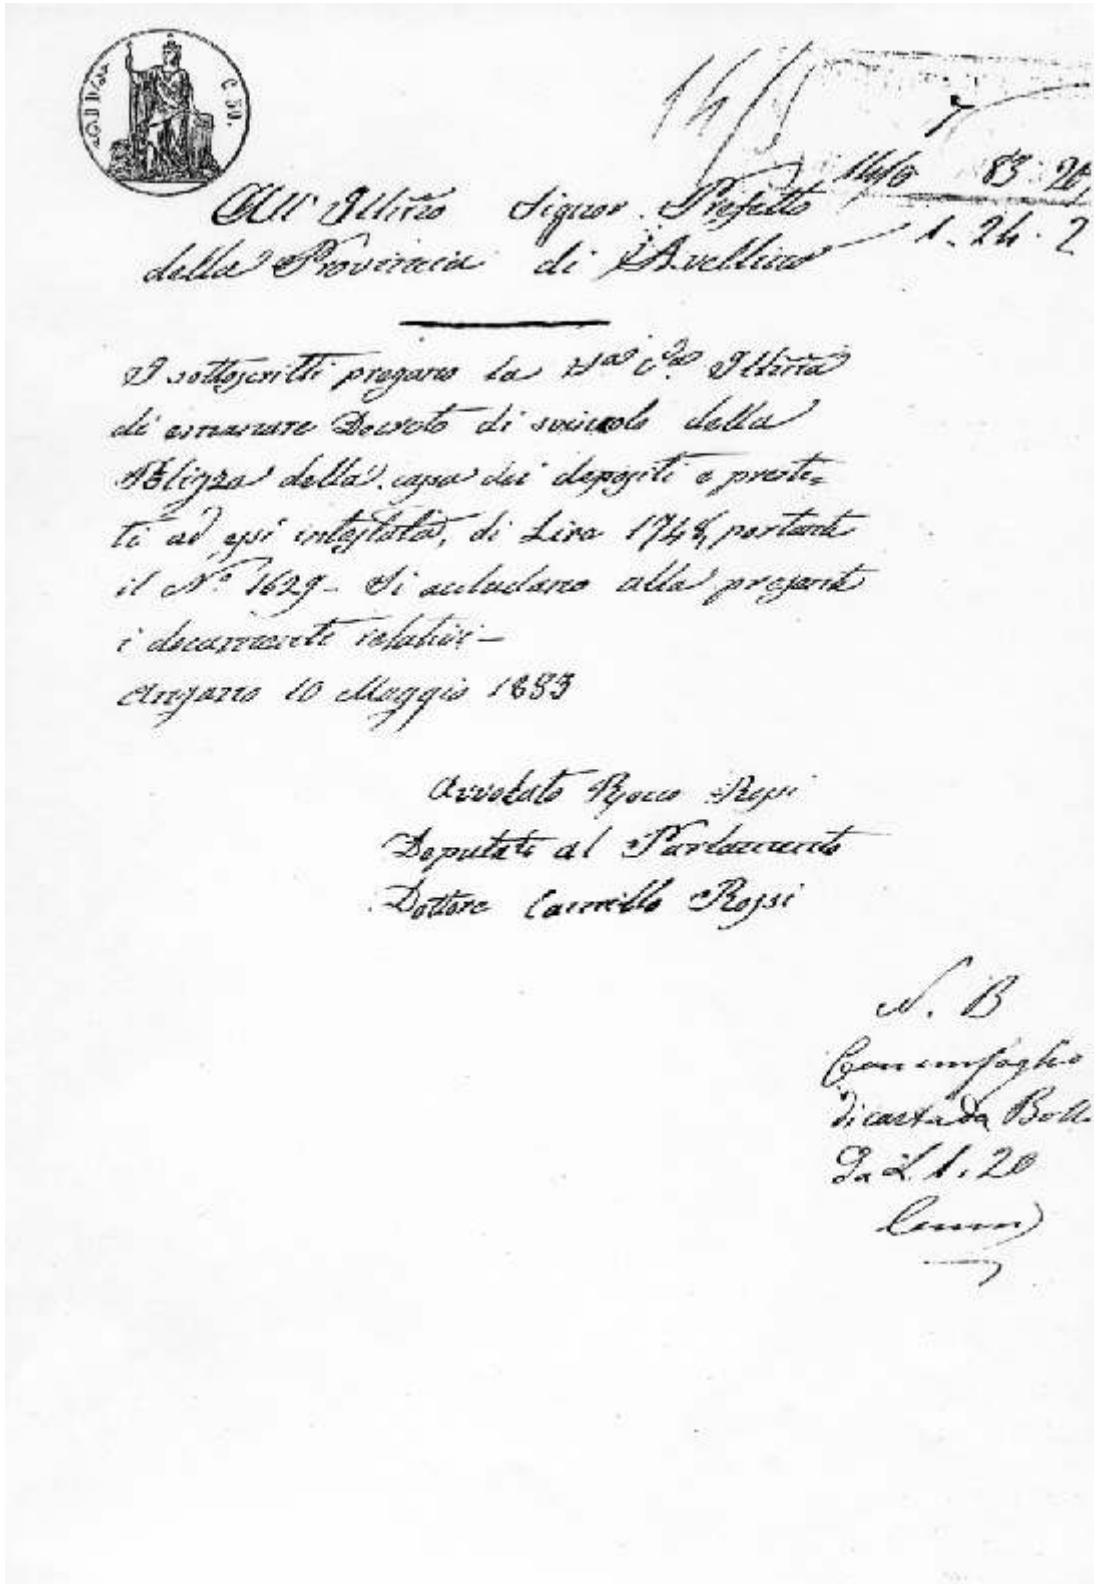 C. 50.
14/5
7
1446 83.20
1.24.2
All' Ill.mo Signor Prefetto
della Provincia di Avellino
I sottoscritti pregano la Ill.ma
di emanare Decreto di svincolo della
Polizza della cassa dei depositi e presti=
ti ad essi intestata, di Lire 1748, portante
il N.o 1629 - Si accludano alla presente
i documenti relativi -
Anzano 10 Maggio 1883
Avvocato Rocco Rossi
Deputato al Parlamento
Dottore Camillo Rossi
N. B
Con un foglio
di carta da Boll
Da L. 1.20